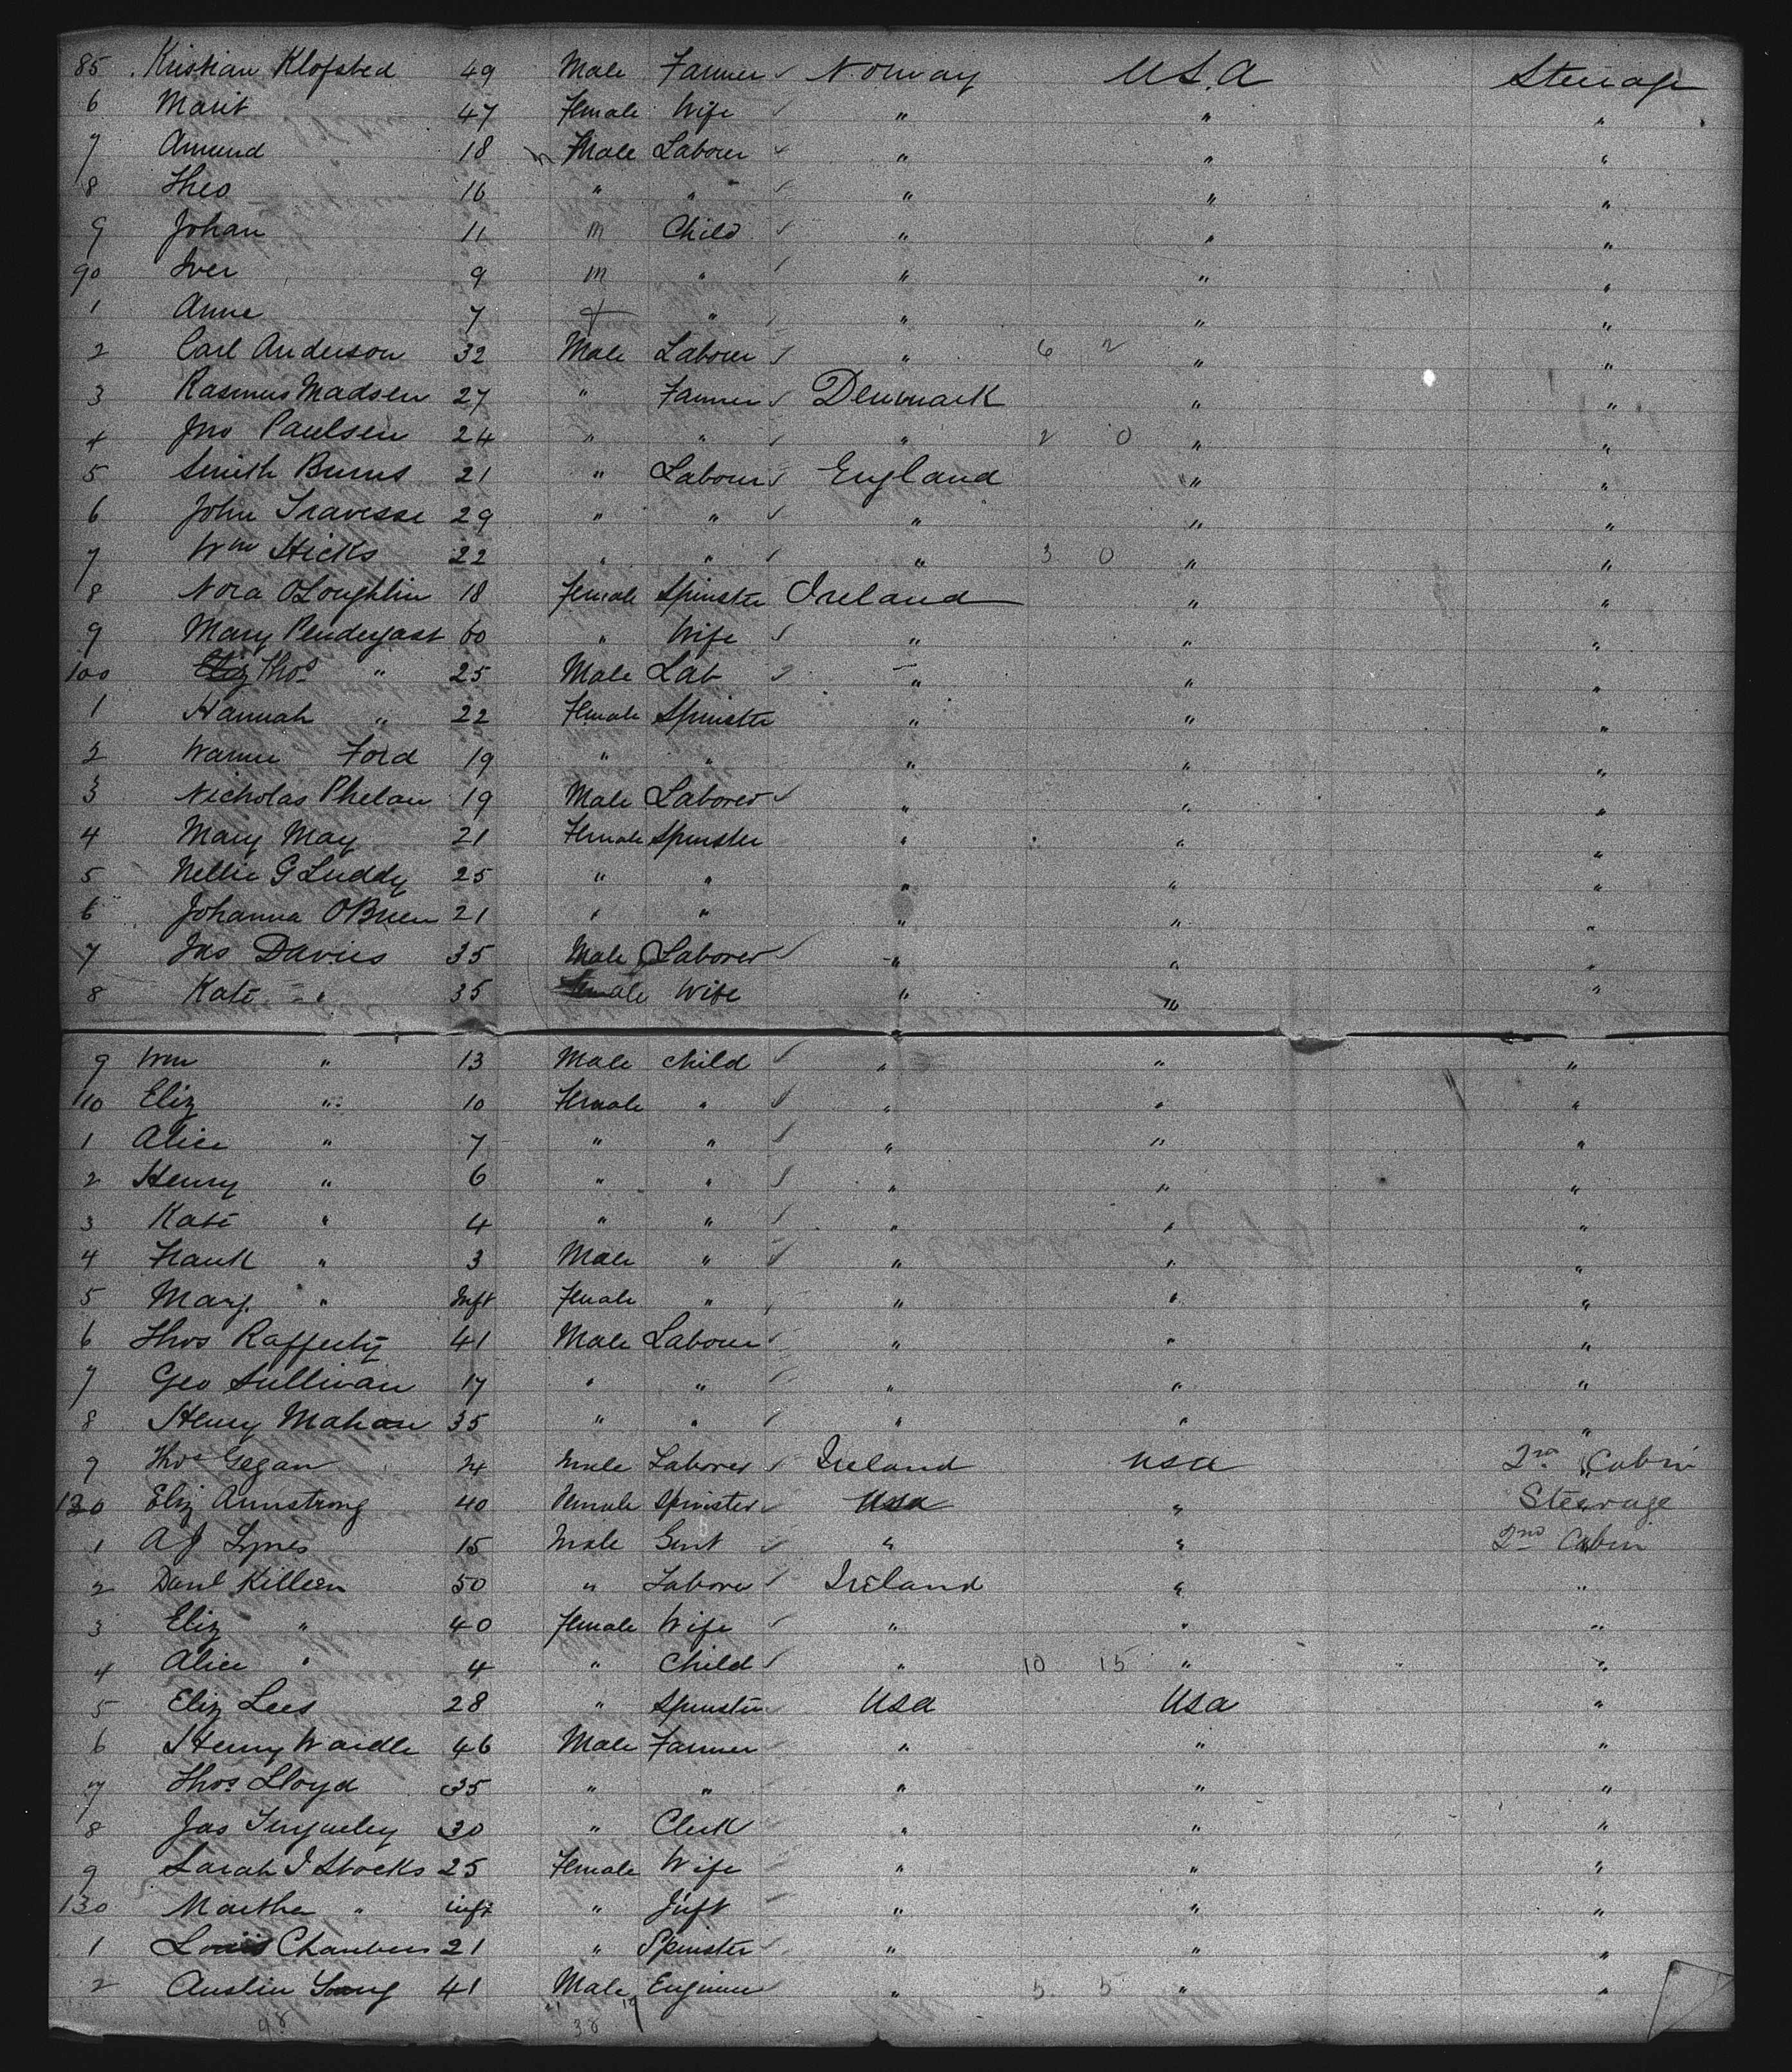 85 Kristian Klofsted 49 Male Farmer ✓ Norway U.S.A Steerage
6 Marit 47 Female Wife ✓ " " "
7 Amund 18 Male Labourer ✓ " " "
8 Theo 16 " " ✓ " " "
9 Johan 11 m Child ✓ " " "
90 Iver 9 m " ✓ " " "
1 Anne 7 f " ✓ " " "
2 Carl Anderson 32 Male Labourer ✓ " 6 2 " "
3 Rasmus Madsen 27 " Farmer ✓ Denmark " "
4 Jno Paulsen 24 " " ✓ " 2 0 " "
5 Smith Burns 21 " Labourer ✓ England " "
6 John Travesse 29 " " ✓ " " "
7 Wm Hicks 22 " " ✓ " 3 0 " "
8 Nora O'Loughlin 18 Female Spinster Ireland " "
9 Mary Pendergast 60 " Wife ✓ " " "
100 Thos " 25 Male Lab ✓ " " "
1 Hannah " 22 Female Spinster " " "
2 Ford 19 " " " " "
3 Nicholas Phelan 19 Male Laborer ✓ " " "
4 Mary May 21 Female Spinster " " "
5 Nellie G Luddy 25 " " " " "
6 Johanna OBrien 21 " " " " "
7 Jas Davies 35 Male Laborer ✓ " " "
8 Kate " 35 Female Wife " " "
9 Wm " 13 Male Child ✓ " " "
110 Eliz " 10 Female " ✓ " " "
1 Alice " 7 " " ✓ " " "
2 Henry " 6 " " ✓ " " "
3 Kate " 4 " " ✓ " " "
4 Frank " 3 Male " ✓ " " "
5 Mary " Inft Female " ✓ " " "
6 Thos Rafferty 41 Male Labourer ✓ " " "
7 Geo Sullivan 17 " " ✓ " " "
8 Henry Mahon 35 " " ✓ " " "
9 Thos Gegan 24 Male Laborer ✓ Ireland USA 2nd Cabin
120 Eliz Armstrong 40 Female Spinster ✓ USA " Steerage
1 A J Lynes 15 Male Gent ✓ " " 2nd Cabin
2 Danl Killeen 50 " Laborer ✓ Ireland " "
3 Eliz " 40 Female Wife ✓ " " "
4 Alice " 4 " Child ✓ " 10 15 " "
5 Eliz Lees 28 " Spinster USA USA "
6 Henry Wardle 46 Male Farmer " " "
7 Thos Lloyd 35 " " " " "
8 Jas 30 " Clerk " " "
9 Sarah J Stocks 25 Female Wife " " "
130 Martha " inft " Inft " " "
1 Chambers 21 " Spinster " " "
2 Austin 41 Male Engineer " 5 5 " "
48 38